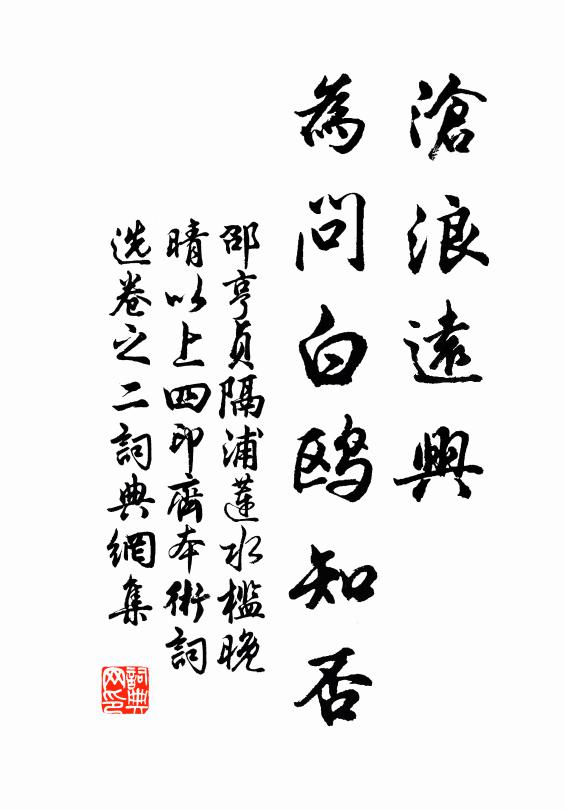 滄浪遠興
為問白鸥知否
邵亨貞隔浦蓮水檻晚
晴以上四印齊本術詞
选卷之二詞典網集
詞典网印